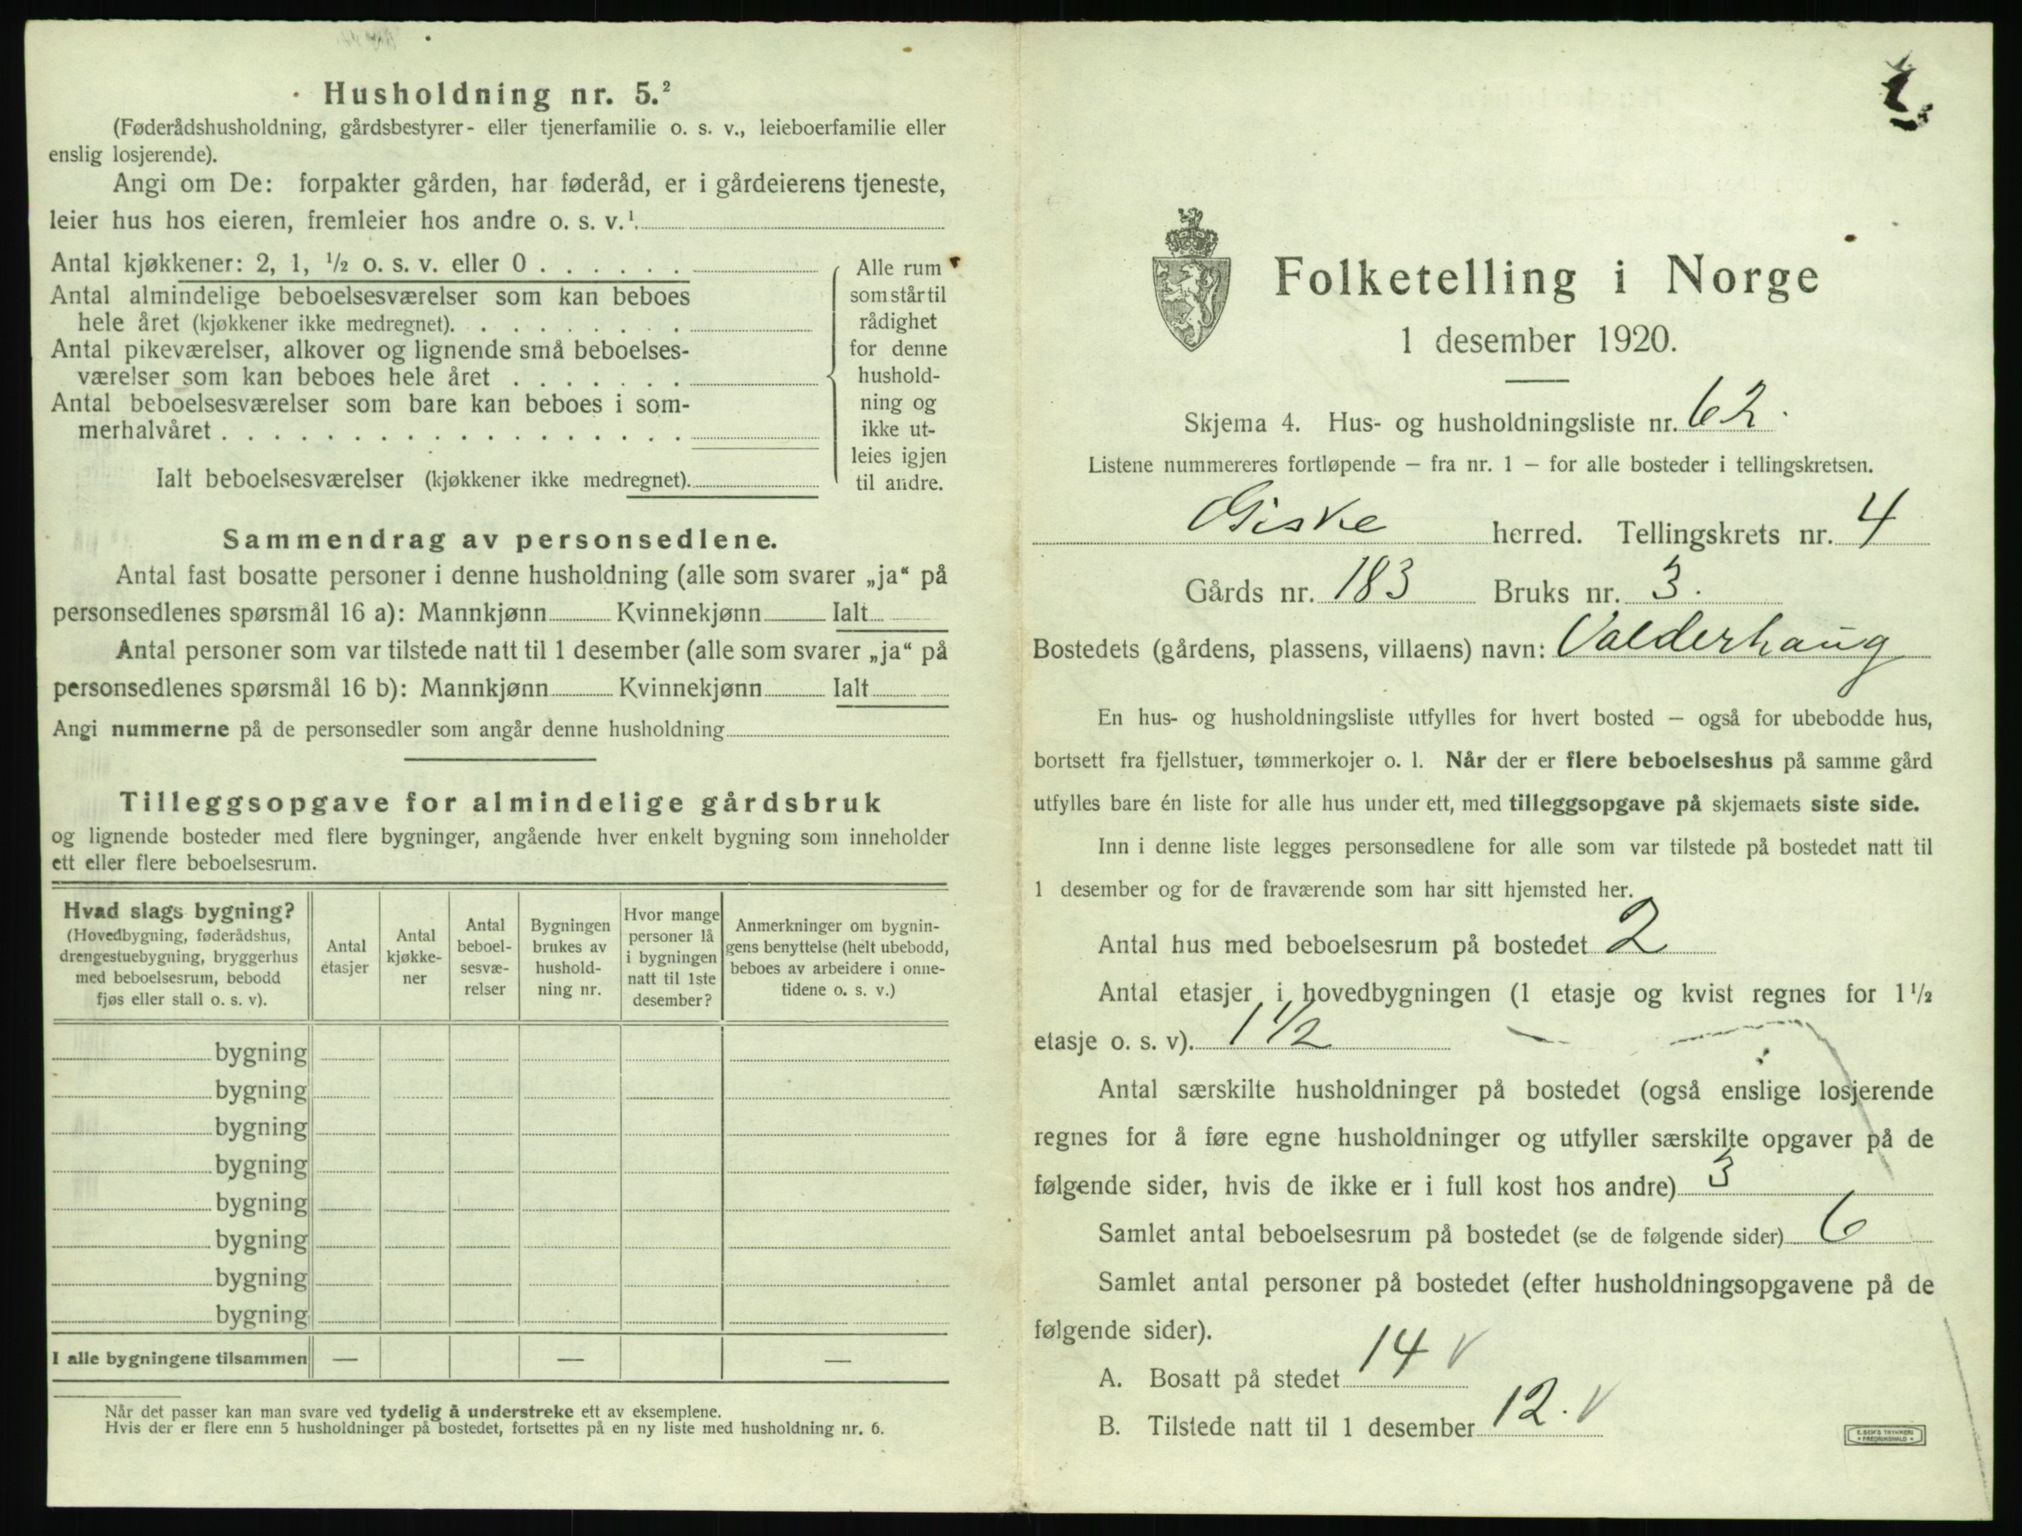 Husholdning nr. 5.²
(Føderådshusholdning, gårdsbestyrer- eller tjenerfamilie o. s. v., leieboerfamilie eller
enslig losjerende).
Angi om De: forpakter gården, har føderåd, er i gårdeierens tjeneste,
leier hus hos eieren, fremleier hos andre o. s. v.¹.
Antal kjøkkener: 2, 1, ½ o. s. v. eller 0 . . . . . .
Antal almindelige beboelsesværelser som kan beboes
hele året (kjøkkener ikke medregnet). . . . . . . . .
Antal pikeværelser, alkover og lignende små beboelses-
værelser som kan beboes hele året . . . . . . .
Antal beboelsesværelser som bare kan beboes i som-
merhalvåret . . . . . . . . . . . . . . . . . .
Ialt beboelsesværelser (kjøkkener ikke medregnet).
Alle rum
som står til
rådighet
for denne
hushold-
ning og
ikke ut-
leies igjen
til andre.
Sammendrag av personsedlene.
Antal fast bosatte personer i denne husholdning (alle som svarer „ja“ på
personsedlenes spørsmål 16 a): Mannkjønn Kvinnekjønn Ialt
Antal personer som var tilstede natt til 1 desember (alle som svarer „ja“ på
personsedlenes spørsmål 16 b): Mannkjønn Kvinnekjønn Ialt
Angi nummerne på de personsedler som angår denne husholdning
Tilleggsopgave for almindelige gårdsbruk
og lignende bosteder med flere bygninger, angående hver enkelt bygning som inneholder
ett eller flere beboelsesrum.
Hvad slags bygning?
(Hovedbygning, føderådshus,
drengestuebygning, bryggerhus
med beboelsesrum, bebodd
fjøs eller stall o. s. v).
Antal
etasjer
Antal
kjøkke-
ner
Antal
beboel-
sesvæ-
relser
Bygningen
brukes av
hushold-
ning nr.
Hvor mange
personer lå
i bygningen
natt til 1ste
desember?
Anmerkninger om bygnin-
gens benyttelse (helt ubebodd,
beboes av arbeidere i onne-
tidene o. s. v.)
bygning
bygning
bygning
bygning
bygning
bygning
bygning
bygning
I alle bygningene tilsammen — — —
Når det passer kan man svare ved tydelig å understreke ett av eksemplene.
Hvis der er flere enn 5 husholdninger på bostedet, fortsettes på en ny liste med husholdning nr. 6.
Folketelling i Norge
1 desember 1920.
Skjema 4. Hus- og husholdningsliste nr. 62.
Listene nummereres fortløpende – fra nr. 1 – for alle bosteder i tellingskretsen.
Giske herred. Tellingskrets nr. 4
Gårds nr. 183 Bruks nr. 3.
Bostedets (gårdens, plassens, villaens) navn: Valderhaug
En hus- og husholdningsliste utfylles for hvert bosted – også for ubebodde hus,
bortsett fra fjellstuer, tømmerkojer o. l. Når der er flere beboelseshus på samme gård
utfylles bare én liste for alle hus under ett, med tilleggsopgave på skjemaets siste side.
Inn i denne liste legges personsedlene for alle som var tilstede på bostedet natt til
1 desember og for de fraværende som har sitt hjemsted her.
Antal hus med beboelsesrum på bostedet 2
Antal etasjer i hovedbygningen (1 etasje og kvist regnes for 1½
etasje o. s. v). 1½
Antal særskilte husholdninger på bostedet (også enslige losjerende
regnes for å føre egne husholdninger og utfyller særskilte opgaver på de
følgende sider, hvis de ikke er i full kost hos andre) 3
Samlet antal beboelsesrum på bostedet (se de følgende sider) 6
Samlet antal personer på bostedet (efter husholdningsopgavene på de
følgende sider).
A. Bosatt på stedet 14 v
B. Tilstede natt til 1 desember 12. v